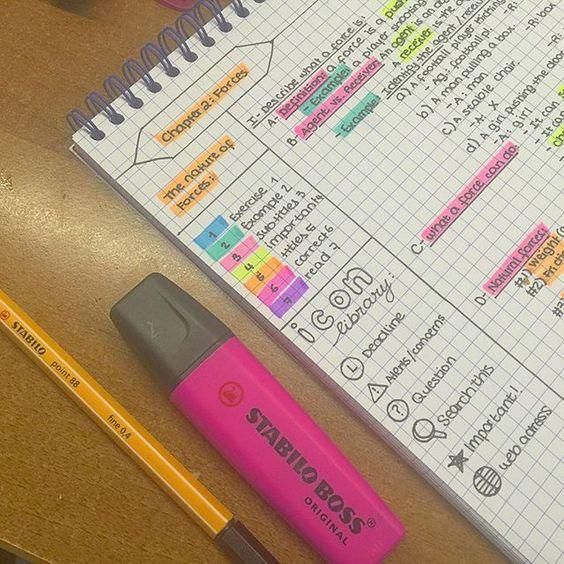 Chapter 2: Forces
The nature of
Forces:
1 Exercise 1
2 Example 2
3 Subtitles 3
4 important 4
5 titles 5
6 correct 6
7 read 7
icon
library:
Deadline
Alerts/concerns
? Question
Search this
Important!
web adress
I- Describe what a force is:
A- Definition: a force is a push
- Example: a player shooting
B- Agent vs. Receiver: an agent is an
receiver is the
- Example: Identify the agent/receiver
a) A football player
- Ag: football pl
b) A man pulling a box.
- A: man
-R: box
c) A stable chair.
- A: X
d) A girl pushing the
- A: girl
- It can
C- what a force can do:
D- Natural forces:
#1) weight
#2) Fric
STABILO
point 88
fine 0,4
STABILO BOSS®
ORIGINAL